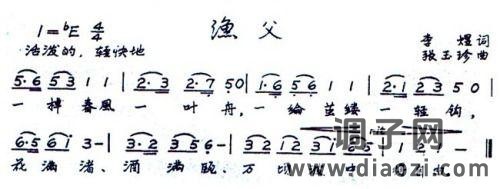 渔父
1=ᵇE 4/4
活泼的，轻快地
李煜词
张玉珍曲
5·6 53 1 1 | 2·3 2·7 5 0 | 1·6 56 1 1 | 2·1 23 5 0 |
一棹春風一叶舟，一纶茧缕一轻钩，
6·5 6i 3 - | 3·2 35 6 - | 32 12 3
花满渚、酒满瓯，万顷
调子网
www.diaozi.com